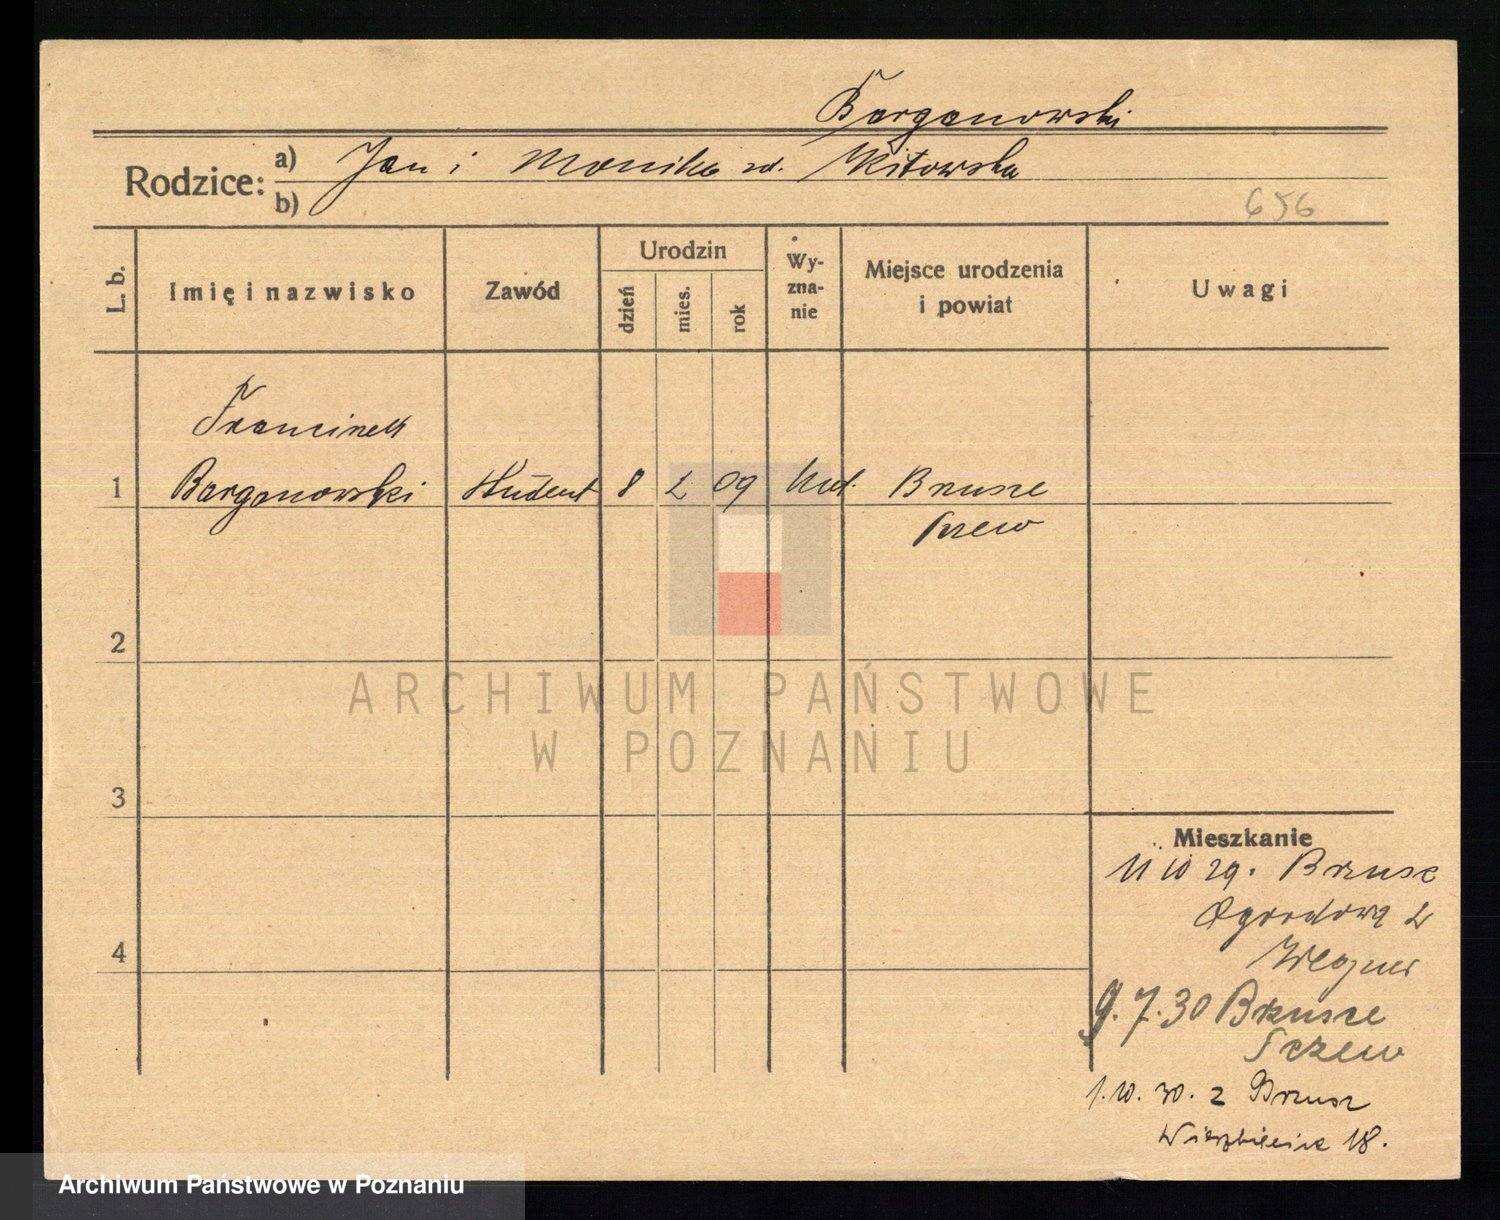 Barganowski
Rodzice: a) Jan i Monika zd. Kitowska
b)
656
L. b.
Imię i nazwisko
Zawód
Urodzin
dzień
mies.
rok
Wy-
zna-
nie
Miejsce urodzenia
i powiat
Uwagi
Franciszek
1 Barganowski student 8 2 09 kat. Brusze
Tczew
2
3
4
ARCHIWUM PAŃSTWOWE
W POZNANIU
Mieszkanie
11 10 29. Brusz
Ogrodowa 2
Wegner
9.7.30 Brusze
Tczew
1.10.30. z Brusz
18.
Archiwum Państwowe w Poznaniu